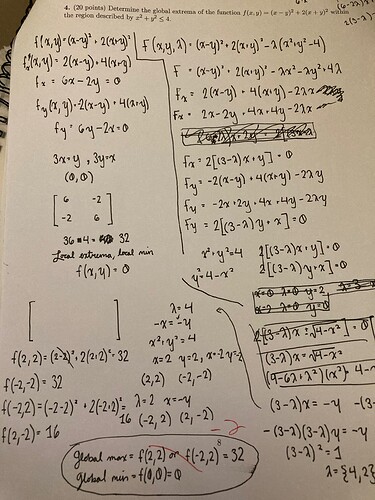 4. (20 points) Determine the global extrema of the function f(x, y) = (x − y)² + 2(x + y)² within
the region described by x² + y² ≤ 4.
f(x,y) = (x-y)² + 2(x+y)²
fx(x,y) = 2(x-y) + 4(x+y)
fx = 6x - 2y = 0
fy(x,y) = -2(x-y) + 4(x+y)
fy = 6y - 2x = 0
3x=y , 3y=x
(0,0)
[ 6 -2 ]
[ -2 6 ]
36 - 4 = 32
Local extrema, local min
f(x,y) = 0
F(x,y,λ) = (x-y)² + 2(x+y)² - λ(x²+y²-4)
F = (x-y)² + 2(x+y)² - λx² - λy² + 4λ
Fx = 2(x-y) + 4(x+y) - 2λx
Fx = 2x - 2y + 4x + 4y - 2λx
Fx = 2[(3-λ)x + y] = 0
Fy = -2(x-y) + 4(x+y) - 2λy
Fy = -2x + 2y + 4x + 4y - 2λy
Fy = 2[(3-λ)y + x] = 0
x² + y² = 4
2[(3-λ)x + y] = 0
2[(3-λ)y + x] = 0
y² = 4 - x²
x=0 λ=0 y=2
x=2 λ=0 y=0
(3-λ)x = √4-x²
(9-6λ+λ²)(x²) = 4-x
(3-λ)x = -y
-(3-λ)(3-λ)y = -y
(3-λ)² = 1
λ = {4,2}
λ = 4
-x = -y
x² + y² = 4
x=2 y=2, x=-2 y=-2
(2,2) (-2,-2)
λ=2 x=-y
(-2,2) (2,-2)
f(2,2) = (2-2)² + 2(2+2)² = 32
f(-2,-2) = 32
f(-2,2) = (-2-2)² + 2(-2+2)² = 16
f(2,-2) = 16
-2
8
Global max = f(2,2) or f(-2,-2) = 32
Global min = f(0,0) = 0